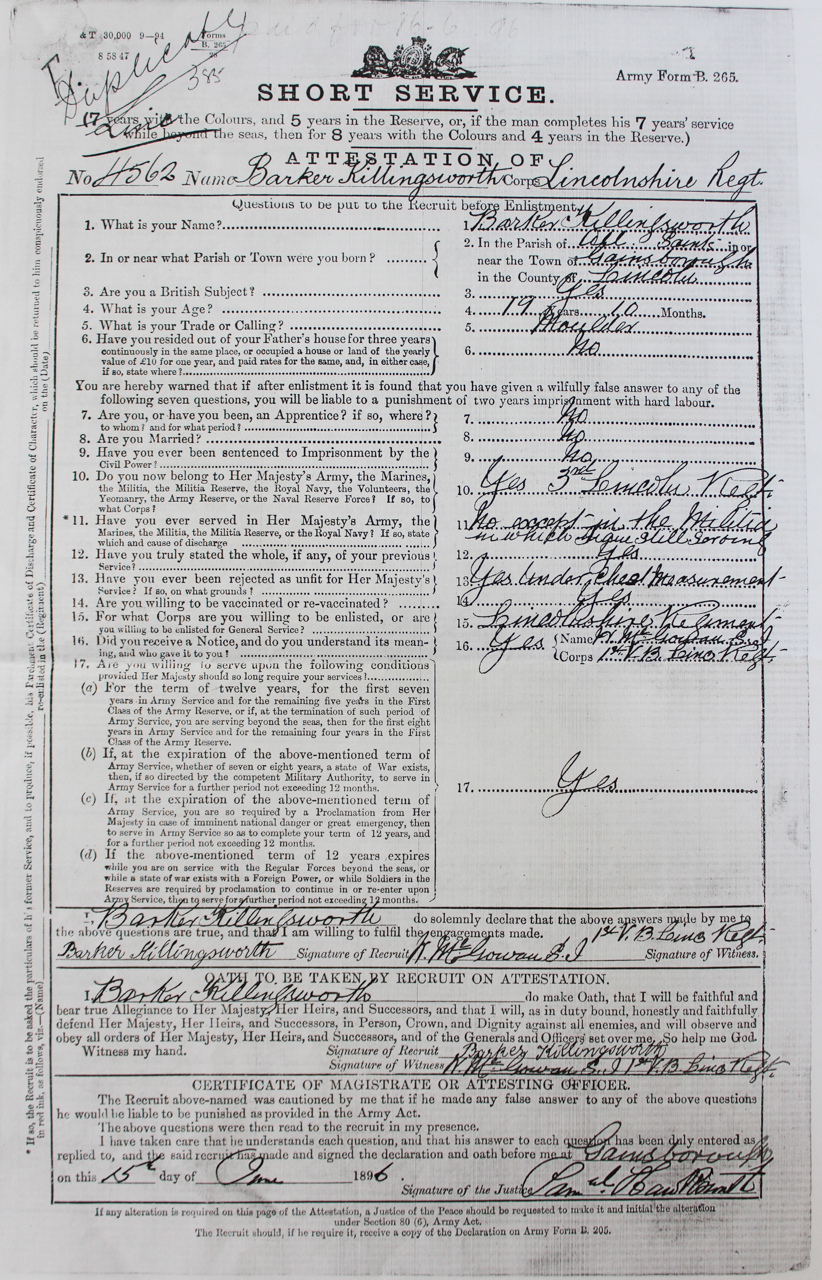 & T 30,000 9—94 Forms
B. 265
8 58 47
Duplicate
385
Army Form B. 265.
SHORT SERVICE.
(7 years with the Colours, and 5 years in the Reserve, or, if the man completes his 7 years' service
while beyond the seas, then for 8 years with the Colours and 4 years in the Reserve.)
ATTESTATION OF
No. 4562 Name Barker Killingsworth Corps Lincolnshire Regt.
Questions to be put to the Recruit before Enlistment.
1. What is your Name? 1. Barker Killingsworth
2. In or near what Parish or Town were you born? 2. In the Parish of All Saints in or
near the Town of Gainsborough
in the County of Lincoln
3. Are you a British Subject? 3. Yes
4. What is your Age? 4. 19 Years 10 Months.
5. What is your Trade or Calling? 5. Moulder
6. Have you resided out of your Father's house for three years 6. No
continuously in the same place, or occupied a house or land of the yearly
value of £10 for one year, and paid rates for the same, and, in either case,
if so, state where?
You are hereby warned that if after enlistment it is found that you have given a wilfully false answer to any of the
following seven questions, you will be liable to a punishment of two years imprisonment with hard labour.
7. Are you, or have you been, an Apprentice? if so, where? 7. No
to whom? and for what period?
8. Are you Married? 8. No
9. Have you ever been sentenced to Imprisonment by the 9. No
Civil Power?
10. Do you now belong to Her Majesty's Army, the Marines, 10. Yes 3rd Lincoln Regt.
the Militia, the Militia Reserve, the Royal Navy, the Volunteers, the
Yeomanry, the Army Reserve, or the Naval Reserve Force? If so, to
what Corps?
*11. Have you ever served in Her Majesty's Army, the 11. No except in the Militia
Marines, the Militia, the Militia Reserve, or the Royal Navy? If so, state in which still serving
which and cause of discharge
12. Have you truly stated the whole, if any, of your previous 12. Yes
Service?
13. Have you ever been rejected as unfit for Her Majesty's 13. Yes Under chest Measurement
Service? If so, on what grounds?
14. Are you willing to be vaccinated or re-vaccinated? 14. Yes
15. For what Corps are you willing to be enlisted, or are 15. Lincolnshire Regiment
you willing to be enlisted for General Service?
16. Did you receive a Notice, and do you understand its mean- 16. Yes Name McGowan
ing, and who gave it to you? Corps 1st V. B. Linc Regt.
17. Are you willing to serve upon the following conditions 17. Yes
provided Her Majesty should so long require your services?
(a) For the term of twelve years, for the first seven
years in Army Service and for the remaining five years in the First
Class of the Army Reserve, or if, at the termination of such period of
Army Service, you are serving beyond the seas, then for the first eight
years in Army Service and for the remaining four years in the First
Class of the Army Reserve.
(b) If, at the expiration of the above-mentioned term of
Army Service, whether of seven or eight years, a state of War exists,
then, if so directed by the competent Military Authority, to serve in
Army Service for a further period not exceeding 12 months.
(c) If, at the expiration of the above-mentioned term of
Army Service, you are so required by a Proclamation from Her
Majesty in case of imminent national danger or great emergency, then
to serve in Army Service so as to complete your term of 12 years, and
for a further period not exceeding 12 months.
(d) If the above-mentioned term of 12 years expires
while you are on service with the Regular Forces beyond the seas, or
while a state of war exists with a Foreign Power, or while Soldiers in the
Reserves are required by proclamation to continue in or re-enter upon
Army Service, then to serve for a further period not exceeding 12 months.
I, Barker Killingsworth do solemnly declare that the above answers made by me to
the above questions are true, and that I am willing to fulfil the engagements made. 1st V. B. Linc Regt.
Barker Killingsworth Signature of Recruit McGowan S. I Signature of Witness.
OATH TO BE TAKEN BY RECRUIT ON ATTESTATION.
I, Barker Killingsworth do make Oath, that I will be faithful and
bear true Allegiance to Her Majesty, Her Heirs, and Successors, and that I will, as in duty bound, honestly and faithfully
defend Her Majesty, Her Heirs, and Successors, in Person, Crown, and Dignity against all enemies, and will observe and
obey all orders of Her Majesty, Her Heirs and Successors, and of the Generals and Officers set over me. So help me God.
Witness my hand. Signature of Recruit Barker Killingsworth
Signature of Witness McGowan S. I 1st V. B. Linc Regt.
CERTIFICATE OF MAGISTRATE OR ATTESTING OFFICER.
The Recruit above-named was cautioned by me that if he made any false answer to any of the above questions
he would be liable to be punished as provided in the Army Act.
The above questions were then read to the recruit in my presence.
I have taken care that he understands each question, and that his answer to each question has been duly entered as
replied to, and the said recruit has made and signed the declaration and oath before me at Gainsborough
on this 15th day of June 1896.
Signature of the Justice
If any alteration is required on this page of the Attestation, a Justice of the Peace should be requested to make it and initial the alteration
under Section 80 (6), Army Act.
The Recruit should, if he require it, receive a copy of the Declaration on Army Form B. 205.
* If so, the Recruit is to be asked the particulars of his former Service, and to produce, if possible, his Parchment Certificate of Discharge and Certificate of Character, which should be returned to him conspicuously endorsed
in red ink, as follows, viz.—(Name) re-enlisted in the (Regiment) on the (Date)